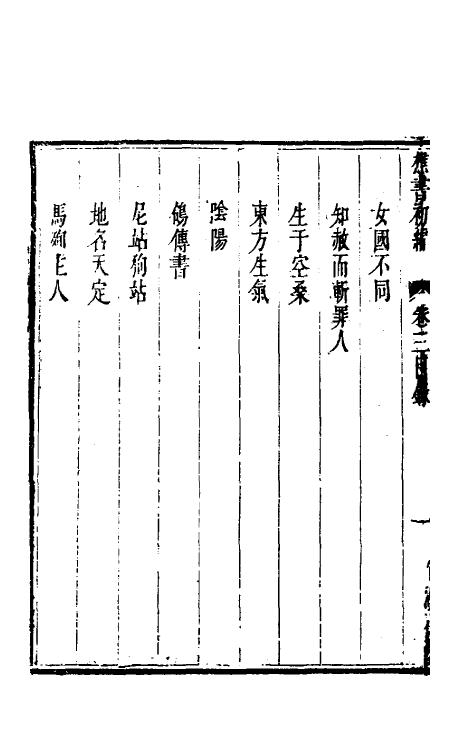 樵書初編
卷三目錄
一
女國不同
知赦而斬罪人
生于空桑
東方生氣
陰陽
鴿傳書
尼站狗站
地名天定
馬狗生人